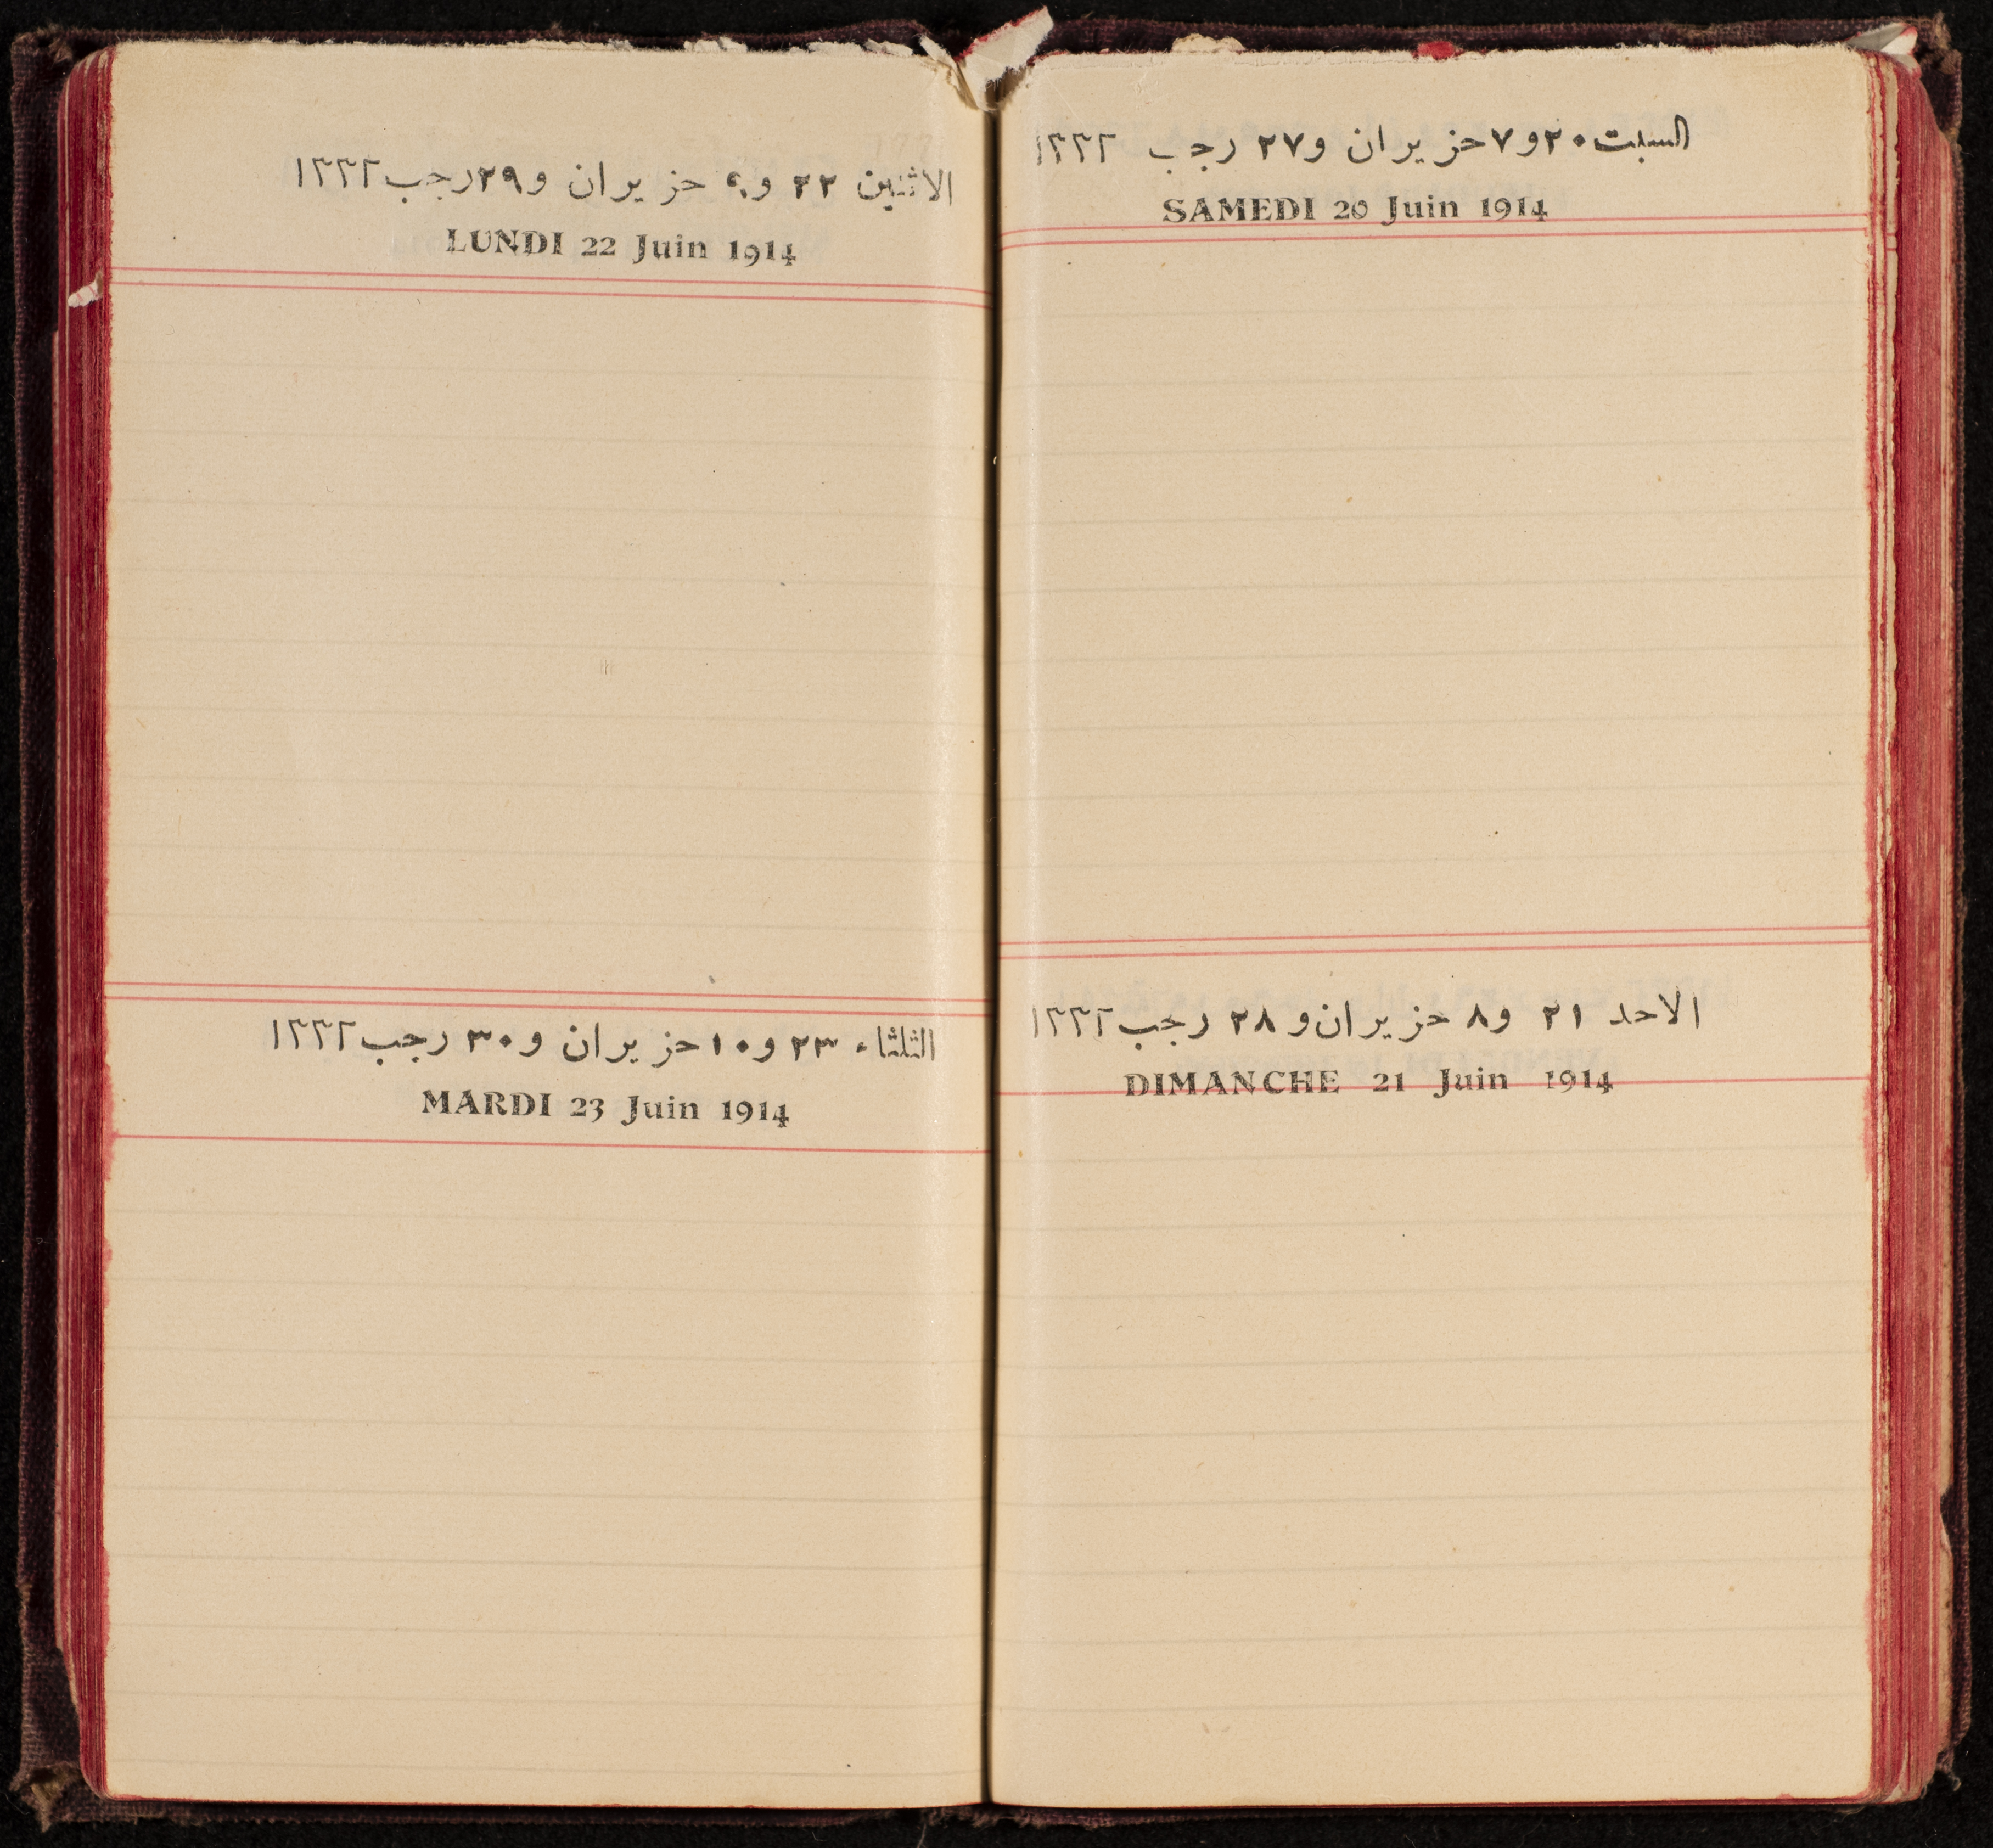 السبت ٢٠ و٧ حزيران و٢٧ رجب ١٣٣٢
SAMEDI 20 Juin 1914
الاحد ٢١ و٨ حزيران و٢٨ رجب ١٣٣٢
DIMANCHE 21 Juin 1914
الاثنين ٢٢ و٩ حزيران و٢٩ رجب ١٣٣٢
LUNDI 22 Juin 1914
الثلثاء ٢٣ و١٠ حزيران و٣٠ رجب ١٣٣٢
MARDI 23 Juin 1914